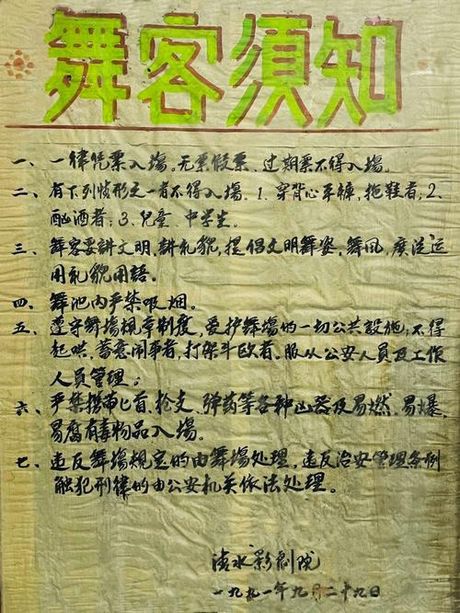 舞客須知
一、一律凭票入場。无票假票、过期票不得入場。
二、有下列情形之一者不得入場：1.穿背心平裤，拖鞋者，2.
酗酒者；3.兒童、中学生。
三、舞客要講文明，講礼貌，提倡文明舞姿，舞風，廣泛运
用礼貌用語。
四、舞池内严禁吸烟。
五、遵守舞場规章制度，爱护舞場的一切公共設施；不得
起哄，蓄意闹事者，打架斗欧者。服从公安人员及工作
人员管理；
六、严禁携帶匕首、抢支、弹药等各种凶器及易燃、易爆、
易腐有毒物品入場。
七、违反舞場规定的由舞場处理，违反治安管理条例
触犯刑律的由公安机关依法处理。
清水影剧院
一九九一年九月二十九日